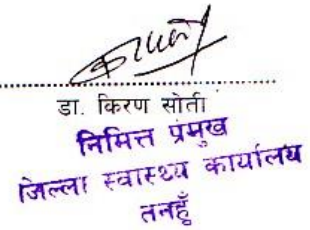 डा. किरण सोती
निमित्त प्रमुख
जिल्ला स्वास्थ्य कार्यालय
तनहुँ